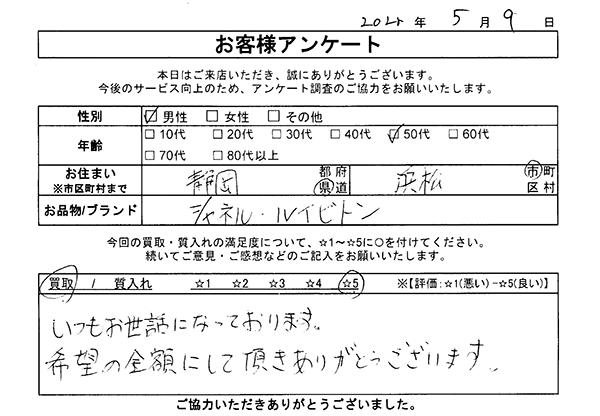 2025 年 5 月 9 日
お客様アンケート
本日はご来店いただき、誠にありがとうございます。
今後のサービス向上のため、アンケート調査のご協力をお願いいたします。
性別 ☑男性 □女性 □その他
年齢 □10代 □20代 □30代 □40代 ☑50代 □60代
□70代 □80代以上
お住まい ※市区町村まで 静岡 都府県道 浜松 市町区村
お品物/ブランド シャネル・ルイビトン
今回の買取・質入れの満足度について、☆1〜☆5に○を付けてください。
続いてご意見・ご感想などのご記入をお願いいたします。
買取 / 質入れ ☆1 ☆2 ☆3 ☆4 ☆5 ※【評価:☆1(悪い)−☆5(良い)】
いつもお世話になっております。
希望の金額にして頂きありがとうございます。
ご協力いただきありがとうございました。